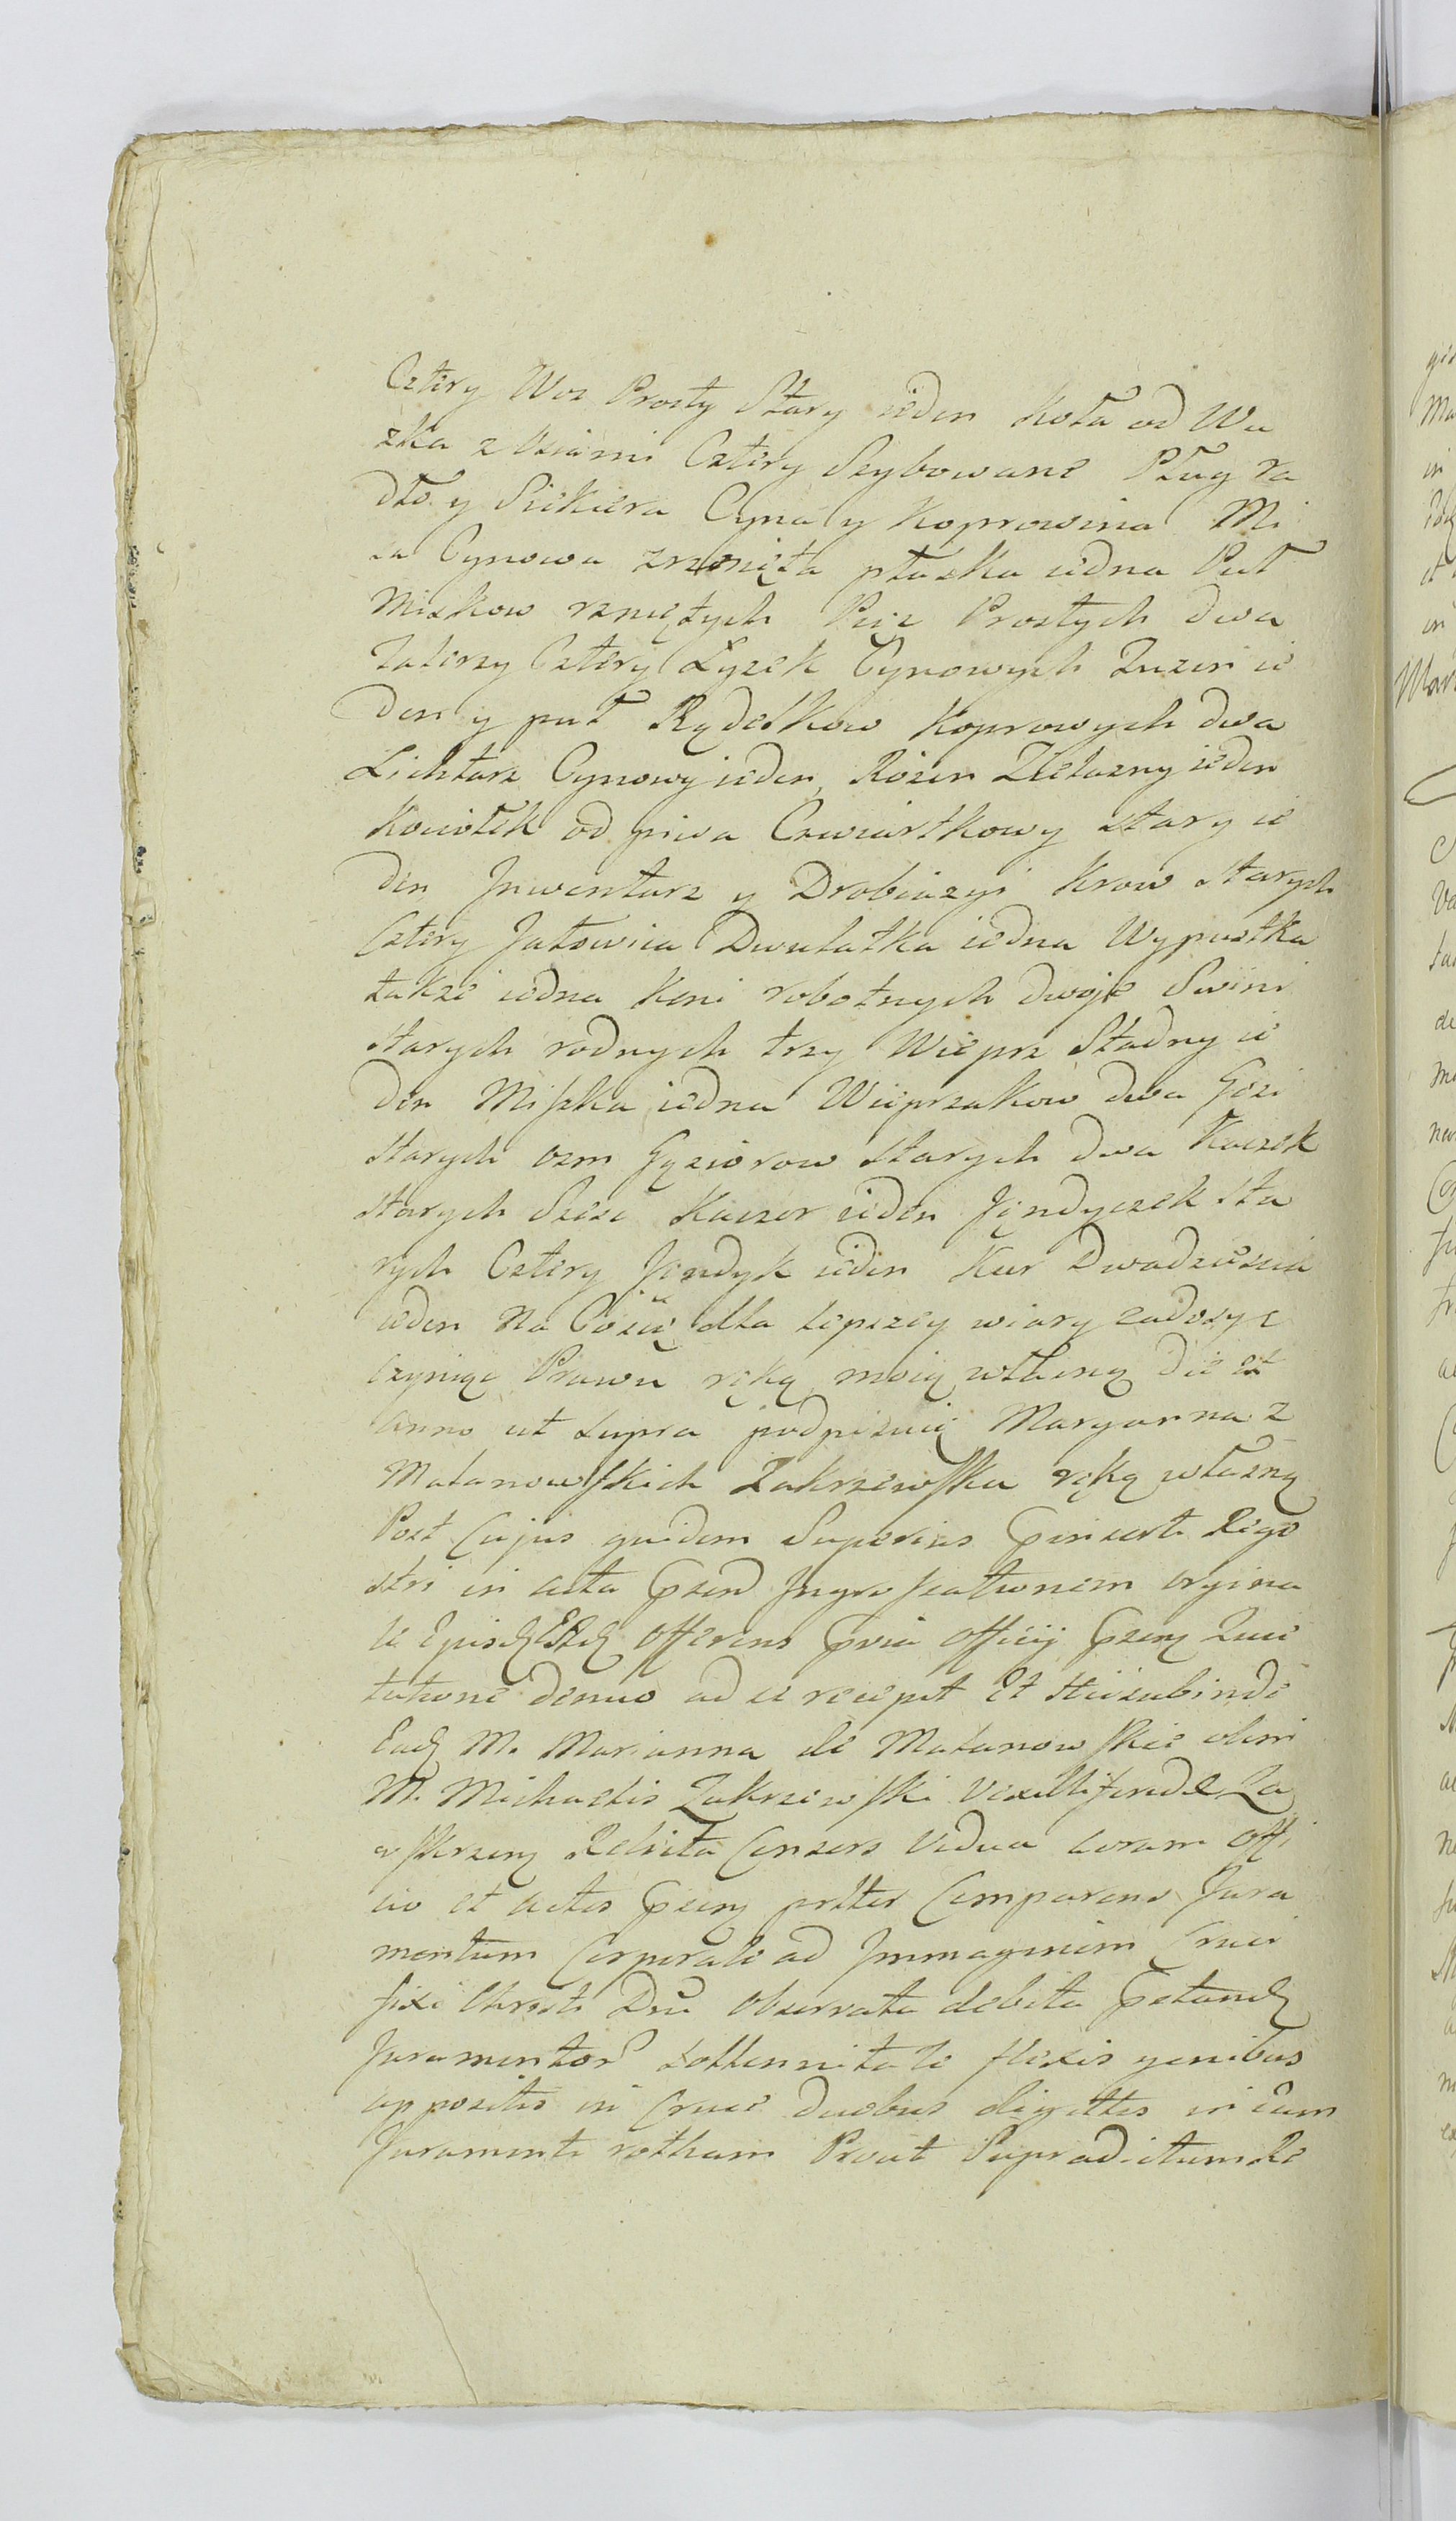 Cztery Woz Prosty Stary ieden Koła od Wu
zka z Osiami Cztery Szybowane Pług Ra
dło y Siekiera Cyna y Koprowina Mi
sa Cynowa zrznięta płaska iedna Puł
Miskow rzniętych Pięc Prostych dwa
Talerzy Cztery Łyzek Cynowych Tuzin ie
den y puł Rydelkow Koprowych dwa
Lichtarz Cynowy ieden, Rozen Zielazny ieden
Kociołek od piwa Czwiartkowy stary ie
den Jnwentarz y Drobiazgi Krow starych
Cztery Jałowica Dwulatka iedna Wypustka
takze iedna Koni robotnych dwoje Swini
starych rodnych trzy Wieprz Stadny ie
den Miszka iedna Wieprzakow dwa Gęsi
starych osm Gęsiorow starych dwa Kaczek
starych Szesc Kaczor ieden Jęndyczek sta
rych Cztery Jendyk ieden Kur Dwadziescia
ieden Na Co się dla lepszey wiary zadosyc
czyniąc Prawu ręką moią własną die et
anno ut supra podpisuię Maryanna z
Matanowskich Zakrzewska ręką własną
Post Cujus quidem Superius insert Rege
stri in acta Jngrossationem orgina
le offerens officij
tatione denuo ad se recepit Et
M. Marianna de Matanowskie olim
M. Michaelis Zakrzewski Vexilliferid
Relicta Consors Vidua coram Offi
cio et Actis Comparens Jura
mentum Corporale ad Jmmaginem Cruci
fixi Christi Dni Observata debita
Juramentor sollennitate flexis genibus
appositis in Cruce duobus digittis in Eam
Juramenti rotham Prout Supradictum Re